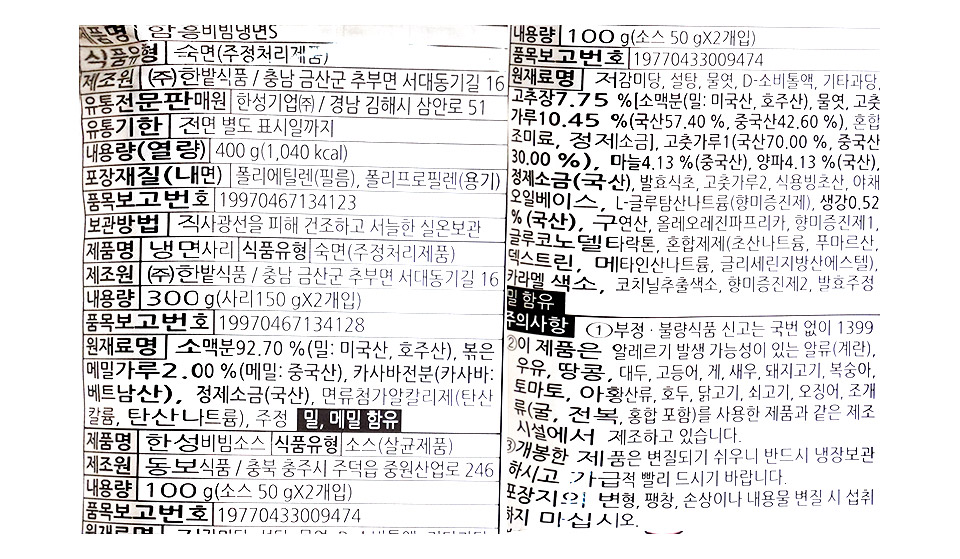 제품명 함흥비빔냉면S
식품유형 숙면(주정처리제품)
제조원 (주)한밭식품 / 충남 금산군 추부면 서대동기길 16
유통전문판매원 한성기업㈜ / 경남 김해시 삼안로 51
유통기한 전면 별도 표시일까지
내용량(열량) 400 g(1,040 kcal)
포장재질(내면) 폴리에틸렌(필름), 폴리프로필렌(용기)
품목보고번호 19970467134123
보관방법 직사광선을 피해 건조하고 서늘한 실온보관
제품명 냉면사리 식품유형 숙면(주정처리제품)
제조원 (주)한밭식품 / 충남 금산군 추부면 서대동기길 16
내용량 300 g(사리150 gX2개입)
품목보고번호 19970467134128
원재료명 소맥분92.70 %(밀: 미국산, 호주산), 볶은
메밀가루2.00 %(메밀: 중국산), 카사바전분(카사바:
베트남산), 정제소금(국산), 면류첨가알칼리제(탄산
칼륨, 탄산나트륨), 주정 밀, 메밀 함유
제품명 한성비빔소스 식품유형 소스(살균제품)
제조원 동보식품 / 충북 충주시 주덕읍 중원산업로 246
내용량 100 g(소스 50 gX2개입)
품목보고번호 19770433009474
원재료명
내용량 100 g(소스 50 gX2개입)
품목보고번호 19770433009474
원재료명 저감미당, 설탕, 물엿, D-소비톨액, 기타과당,
고추장7.75 %[소맥분(밀: 미국산, 호주산), 물엿, 고춧
가루10.45 %(국산57.40 %, 중국산42.60 %), 혼합
조미료, 정제소금], 고춧가루1(국산70.00 %, 중국산
30.00 %), 마늘4.13 %(중국산), 양파4.13 %(국산),
정제소금(국산), 발효식초, 고춧가루2, 식용빙초산, 야채
오일베이스, L-글루탐산나트륨(향미증진제), 생강0.52
% (국산), 구연산, 올레오레진파프리카, 향미증진제1,
글루코노델타락톤, 혼합제제(초산나트륨, 푸마르산,
덱스트린, 메타인산나트륨, 글리세린지방산에스텔),
카라멜 색소, 코치닐추출색소, 향미증진제2, 발효주정
밀 함유
주의사항 ①부정 · 불량식품 신고는 국번 없이 1399
②이 제품은 알레르기 발생 가능성이 있는 알류(계란),
우유, 땅콩, 대두, 고등어, 게, 새우, 돼지고기, 복숭아,
토마토, 아황산류, 호두, 닭고기, 쇠고기, 오징어, 조개
류(굴, 전복, 홍합 포함)를 사용한 제품과 같은 제조
시설에서 제조하고 있습니다.
③개봉한 제품은 변질되기 쉬우니 반드시 냉장보관
하시고 가급적 빨리 드시기 바랍니다.
포장지의 변형, 팽창, 손상이나 내용물 변질 시 섭취
하지 마십시오.